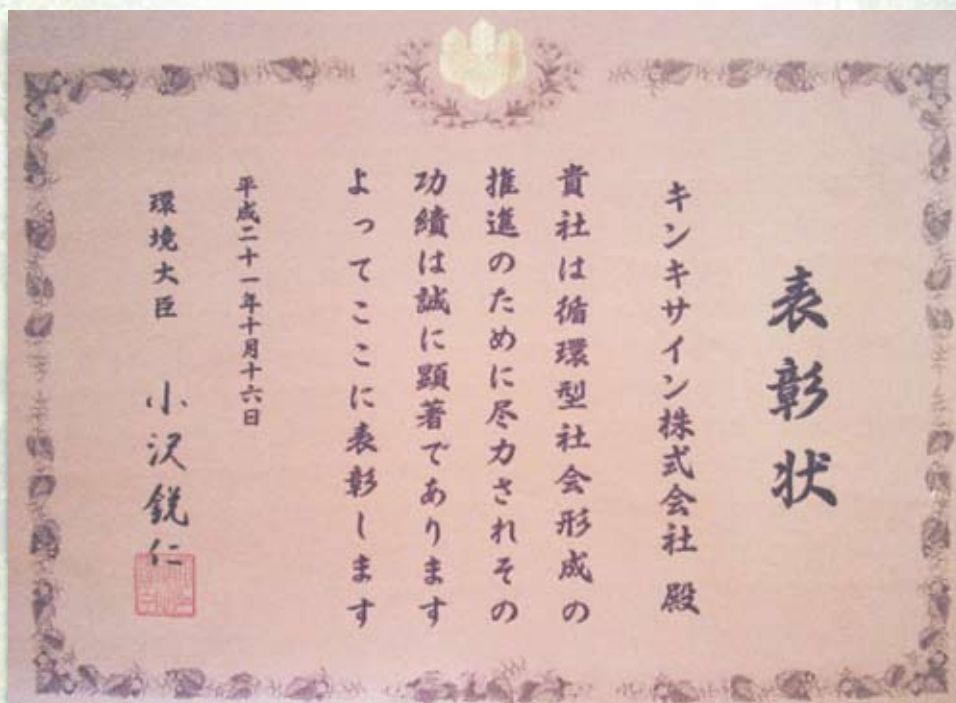 表彰状
キンキサイン株式会社 殿
貴社は循環型社会形成の
推進のために尽力されその
功績は誠に顕著であります
よってここに表彰します
平成二十一年十月十六日
環境大臣 小沢鋭仁